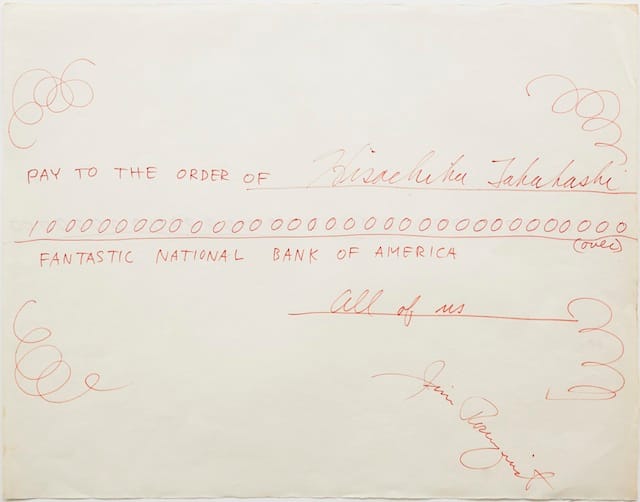 PAY TO THE ORDER OF Hisachika Takahashi
1000000000000000000000000000000000
(over)
FANTASTIC NATIONAL BANK OF AMERICA
All of us
Jim Rosenquist